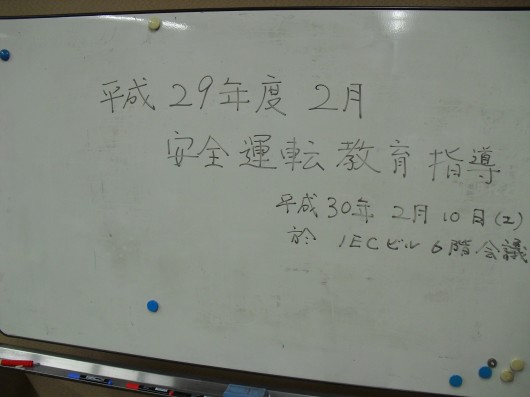 平成 29年度 2月
安全運転教育指導
平成 30年 2月 10日(土)
於 IECビル 6階会議